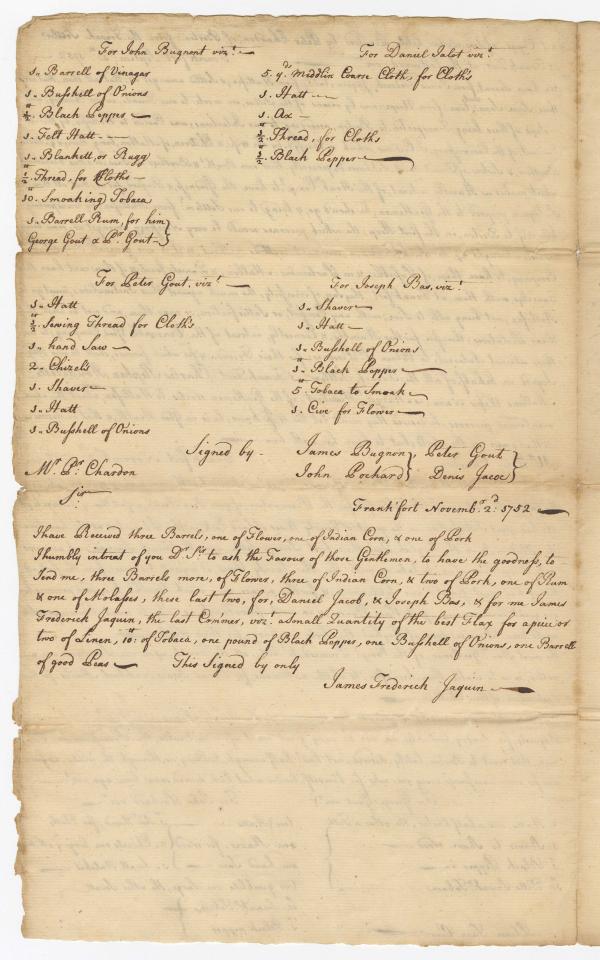 For John Bugnont vizt.
1.. Barrell of Vinagar
1.. Busshell of Onions
½. Black Pepper
1. Felt Hatt
1.. Blankett, or Rugg
½. Thread, for Cloths
10. Smoaking Tobaca
1.. Barrell Rum, for him
George Gout & Pr. Gout
For Daniel Jalot vizt.
5. yds. Middlin Coarse Cloth, for Cloth's
1. Hatt
1. Ax
½. Thread, for Cloths
½. Black Pepper
For Peter Gout, vizt.
1.. Hatt
½. Sewing Thread for Cloth's
1.. hand Saw
2.. Chizel's
1. Shaver
1.. Hatt
1.. Busshell of Onions
For Joseph Bas, vizt.
1.. Shaver
1.. Hatt
1.. Busshell of Onions
1.. Black Pepper
5. Tobaca to Smoak
1. Cive for Flower
Signed by James Bugnon, Peter Gout
John Pochard Denis Jacot
Mr. Pr. Chardon
Sir
Frankfort Novembr. 2d: 1752
I have Received three Barrels, one of Flower, one of Indian Corn, & one of Pork
I humbly intreat of you Dr. Sir to ask the Favour of those Gentlemen, to have the goodness, to
Send me, three Barrels more, of Flower, three of Indian Corn, & two of Pork, one of Rum
& one of Molasses, these last two, for, Daniel Jacob, & Joseph Bas, & for me James
Frederick Jaquin, the last Commer, vizt: a Small Quantity of the best Flax for a pice or
two of Linen, 10: of Tobaca, one pound of Black Pepper, one Busshell of Onions, one Barrell
of good Peas This Signed by only
James Frederich Jaquin